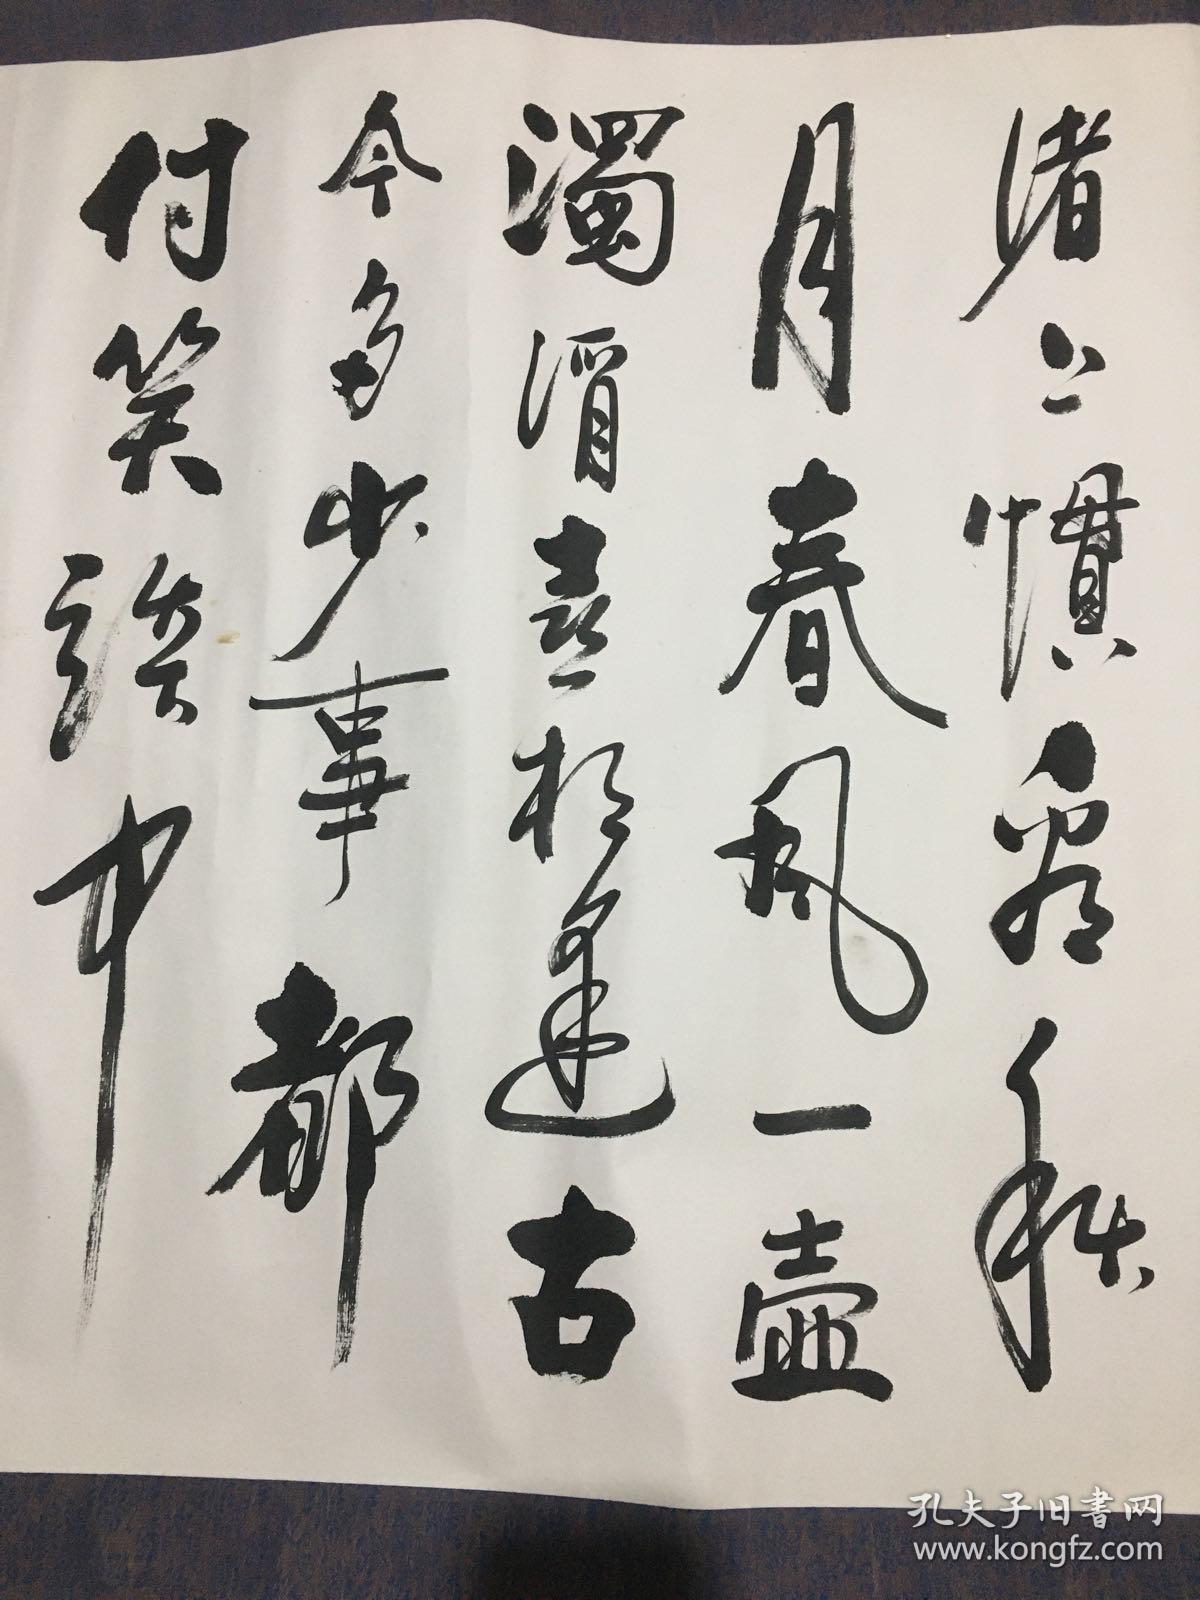 渚上慣看秋
月春風一壺
濁酒喜相逢古
今多少事都
付笑談中
孔夫子旧書网
www.kongfz.com